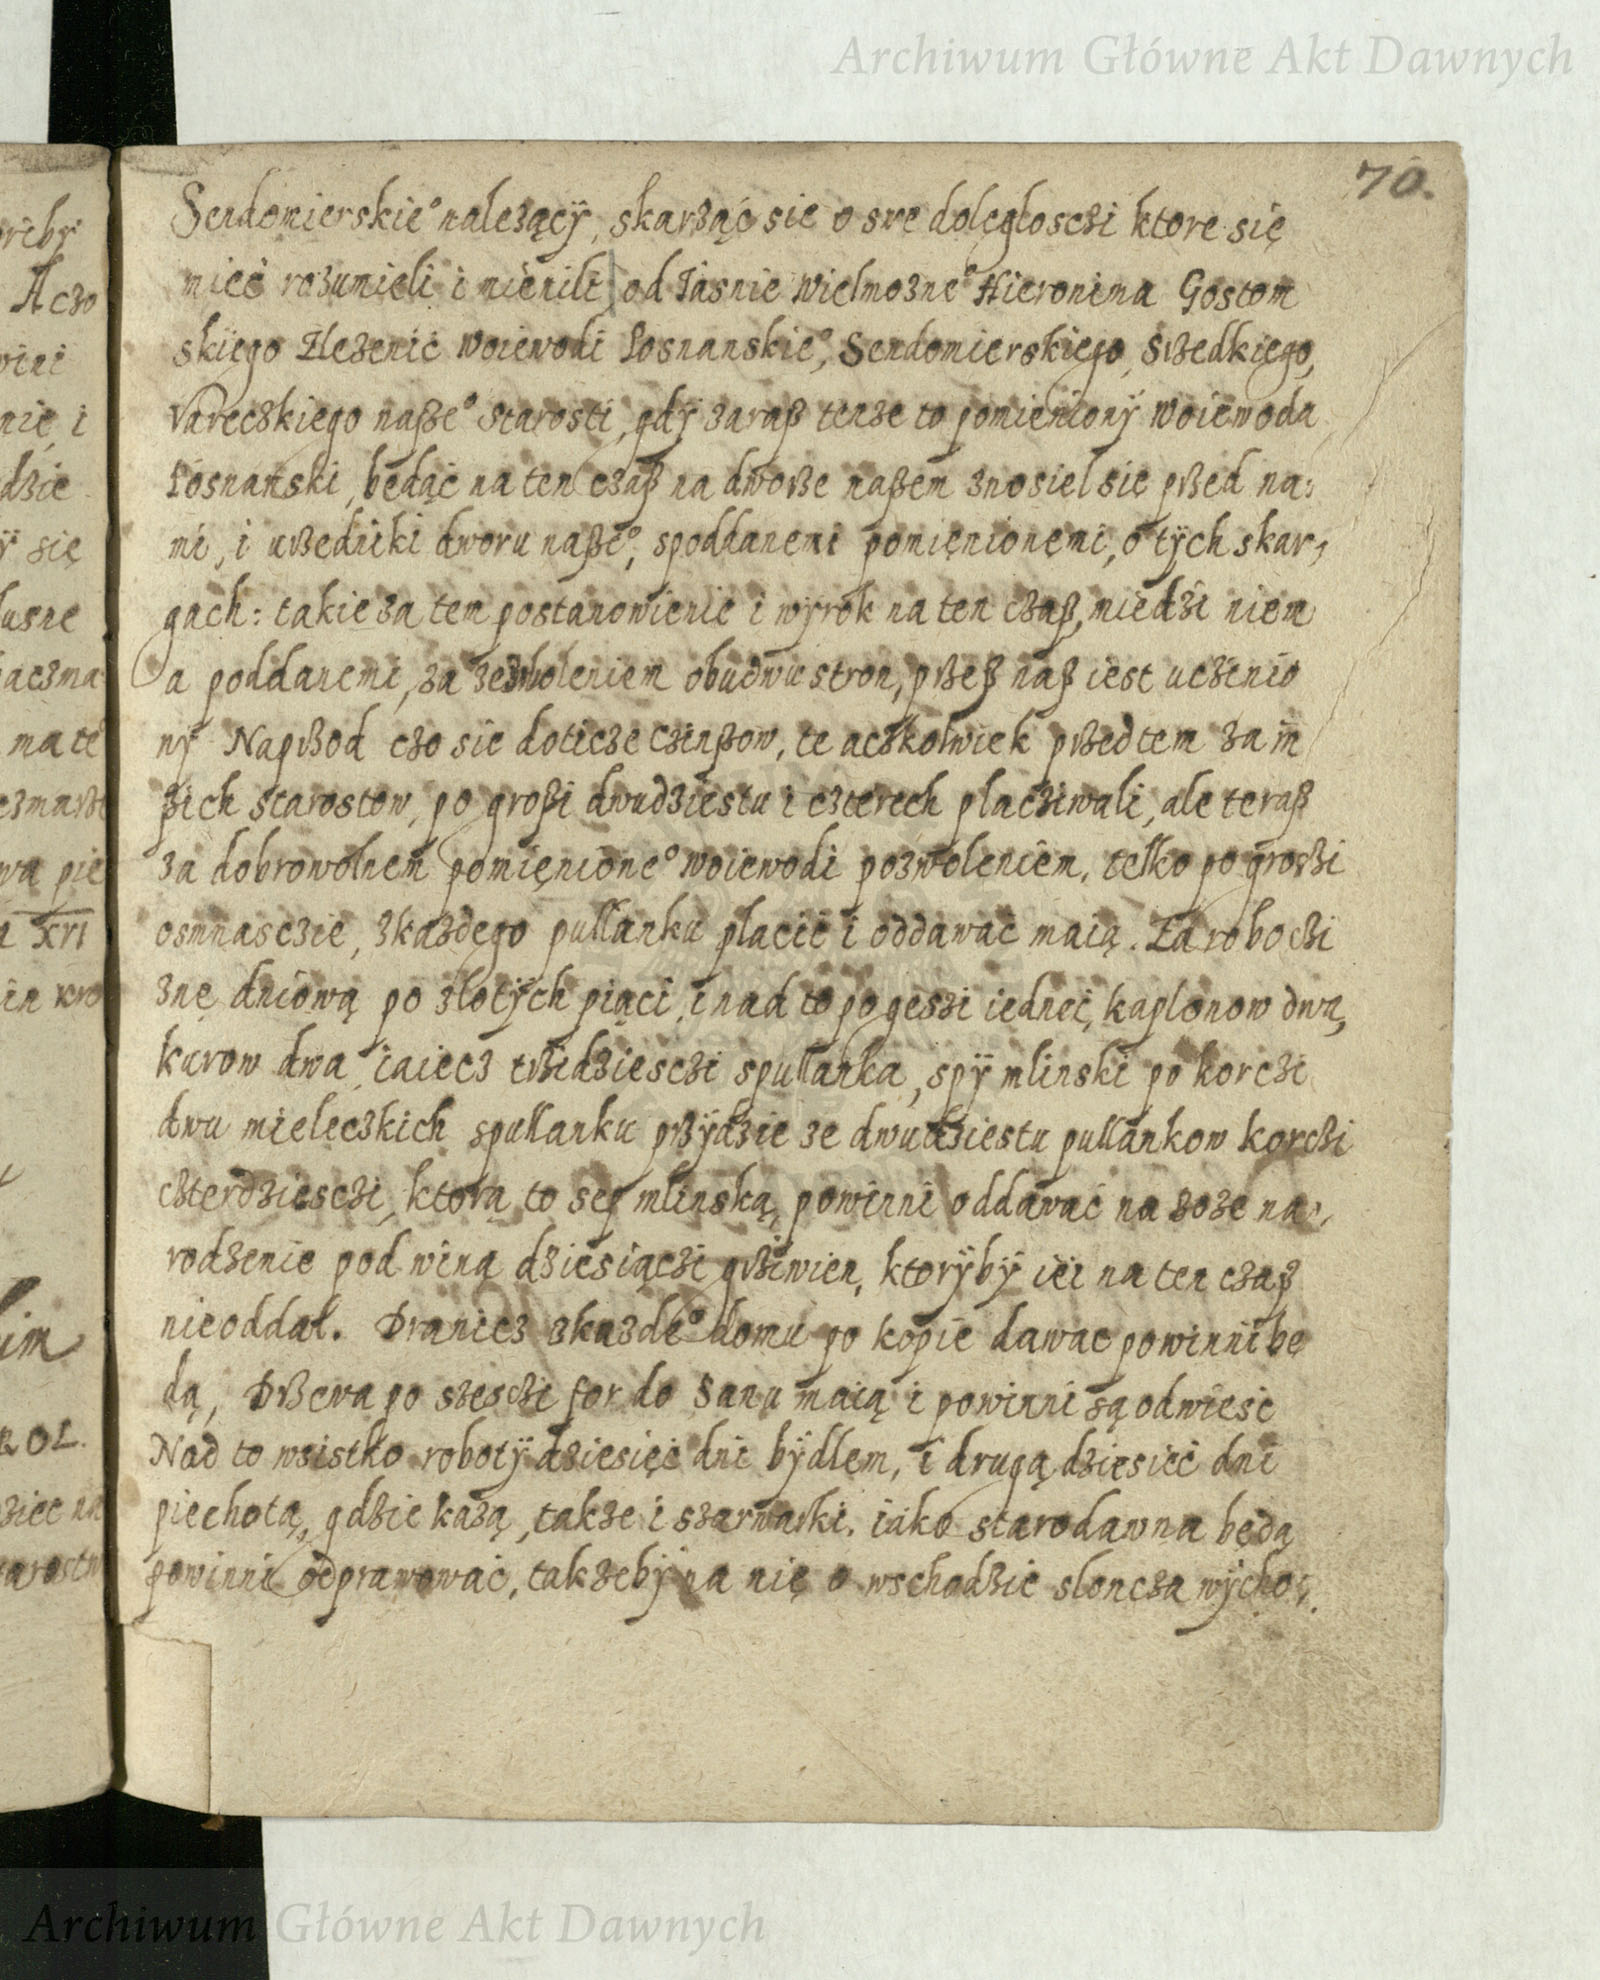 Archiwum Główne Akt Dawnych
70.
Sendomierskie° należący, skarżąć sie o swe dolęgłosczi ktore się
mieć rozumieli i mienili od Iasnie Wielmozne° Hieronima Gostom
skięgo Zlezenić woiewodi Posnanskie°, Sendomierskięgo, Srzedkięgo,
Vareczkiego nasze° Starosti, gdÿ zarasz tenze to pomienionÿ Woiewoda
Posnanski, będąc na ten czasz na dworze naszem znosiel się przed na:
mi, i urzedniki dworu nasze°, spoddanemi pomięnionemi, o tÿch skar,
gach: takie za tem postanowienie i wyrok na ten czasz, miedzi niem
a poddanemi, za zezwoleniem obudwu stron, przesz nasz iest uczinio
nÿ Naprzod czo sie doticze Czinszow, te aczkolwiek przedtem za in
szich starostow, po groszi dwudziestu i czterech placziwali, ale terasz
za dobrowolnem pomięnione° woiewodi pozwoleniem, telko po groszi
osmnasczie, zkazdego pullanku placić i oddawać maią. Za roboczi
znę dniową po zlotÿch piąci, i nad to po gęszi iedneć, kaplonow dwa,
kurow dwa, iaiecz trzidziesczi spullanka, spÿ mlinski po korczi
dwu mieleczkich spullanku przÿdzie ze dwudziestu pullankow korczi
czterdziesczi, ktorą to sep mlinską, powinni oddawać na Boze na,
rodzenie pod winą dziesiączi grziwien, ktorÿbÿ iei na ten czasz
nieoddał. Dranicz zkazde° domu po kopie dawac powinni bę
dą, Drzewa po szesczi for do Sanu maią i powinni są odwieść
Nad to wsistko robotÿ dziesięć dni bÿdlem, i drugą dziesieć dni
piechotą, gdzie każą, takze i szarwarki. iako starodawna będą
powinni odprawować, takzebÿ na nię o wschodzie slonca wÿcho,
Archiwum Główne Akt Dawnych